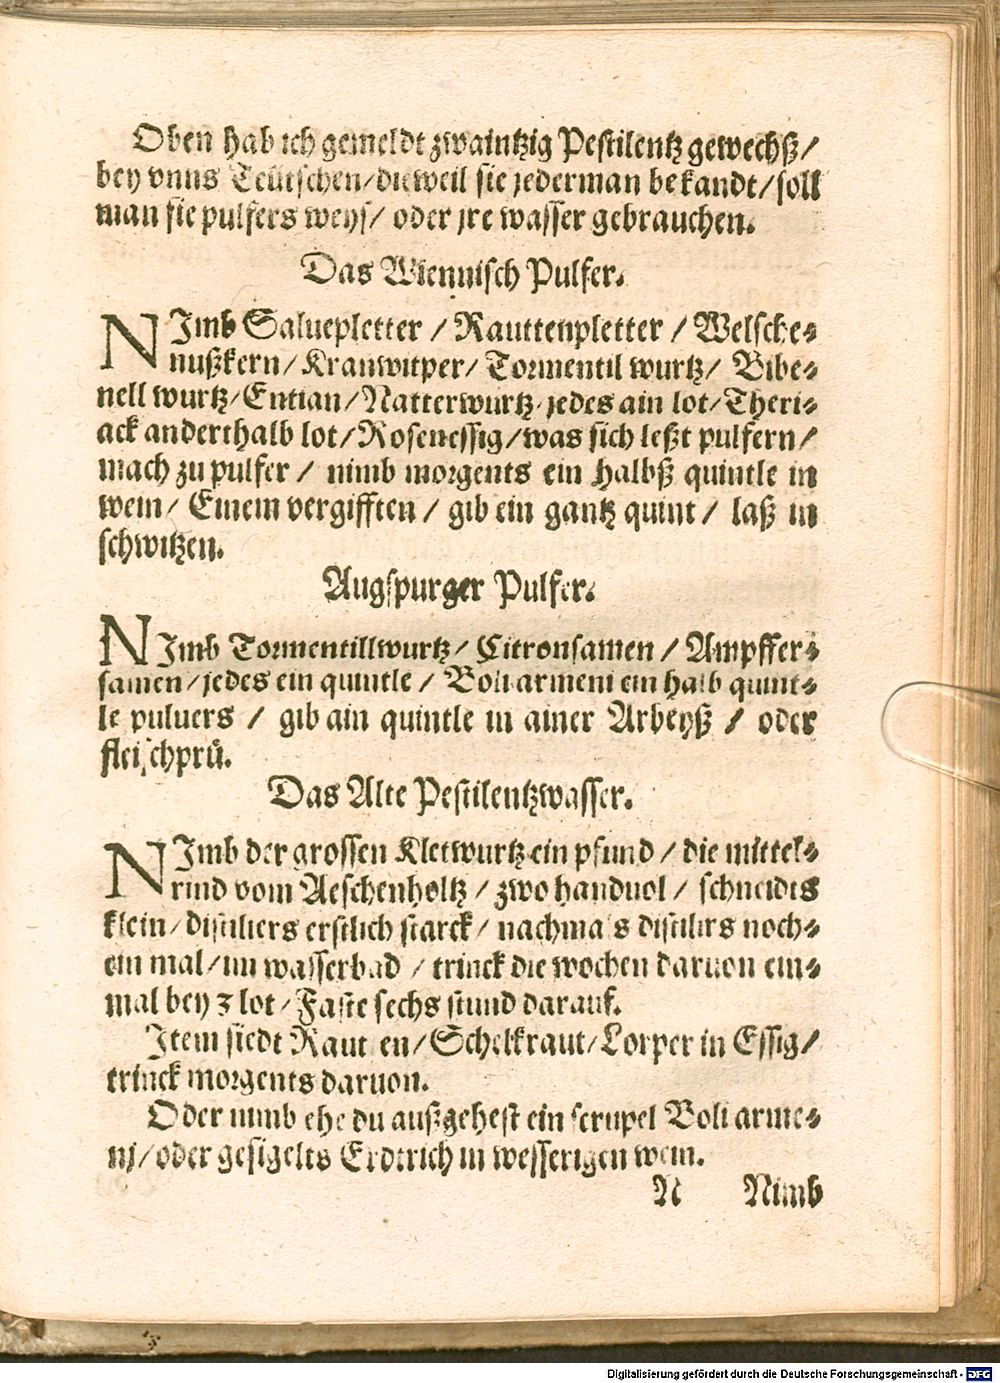 Oben hab ich gemeldt zwaintzig Pestilentz gewechß/
bey vnns Teütschen/dieweil sie jederman bekandt/soll
man sie pulfers weys/ oder jre wasser gebrauchen.
Das Wiennisch Pulfer.
NImb Saluepletter / Rauttenpletter / Welsche⸗
nußkern/ Kranwitper/ Tormentil wurtz/ Bibe⸗
nell wurtz/Entian/Natterwurtz/jedes ain lot/Theri⸗
ack anderthalb lot/Rosenessig/was sich leßt pulfern/
mach zu pulfer / nimb morgents ein halbß quintle in
wein/ Einem vergifften / gib ein gantz quint / laß in
schwitzen.
Augspurger Pulfer.
NImb Tormentillwurtz/ Citronsamen / Ampffer⸗
samen/jedes ein quintle / Boli armeni ein halb quint⸗
le puluers / gib ain quintle in ainer Arbeyß / oder
fleischprü.
Das Alte Pestilentzwasser.
NImb der grossen Kletwurtz ein pfund / die mittel⸗
rind vom Aeschenholtz / zwo handuol / schneidts
klein/distiliers erstlich starck/ nachmals distilirs noch⸗
ein mal/im wasserbad / trinck die wochen daruon ein⸗
mal bey 3 lot/Faste sechs stund darauf.
Item siedt Rauten/Schelkraut/Lorper in Essig/
trinck morgents daruon.
Oder nimb ehe du außgehest ein scrupel Boli arme⸗
nj/oder gesigelts Erdtrich in wesserigen wein.
N Nimb
Digitalisierung gefördert durch die Deutsche Forschungsgemeinschaft - DFG